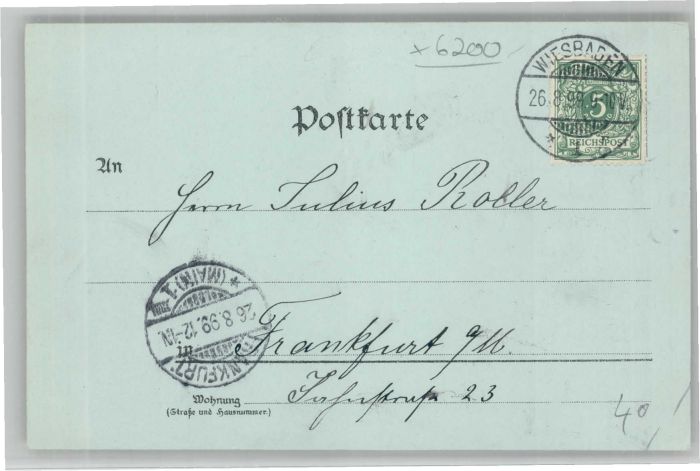 x 6200
WIESBADEN
26.8.99
* 1
5
REICHSPOST
Postkarte
An
Herrn Julius Roller
FRANKFURT
* (MAIN) 1
26.8.99. 12-1N.
in Frankfurt a/M.
Wohnung
(Straße und Hausnummer.)
23
40